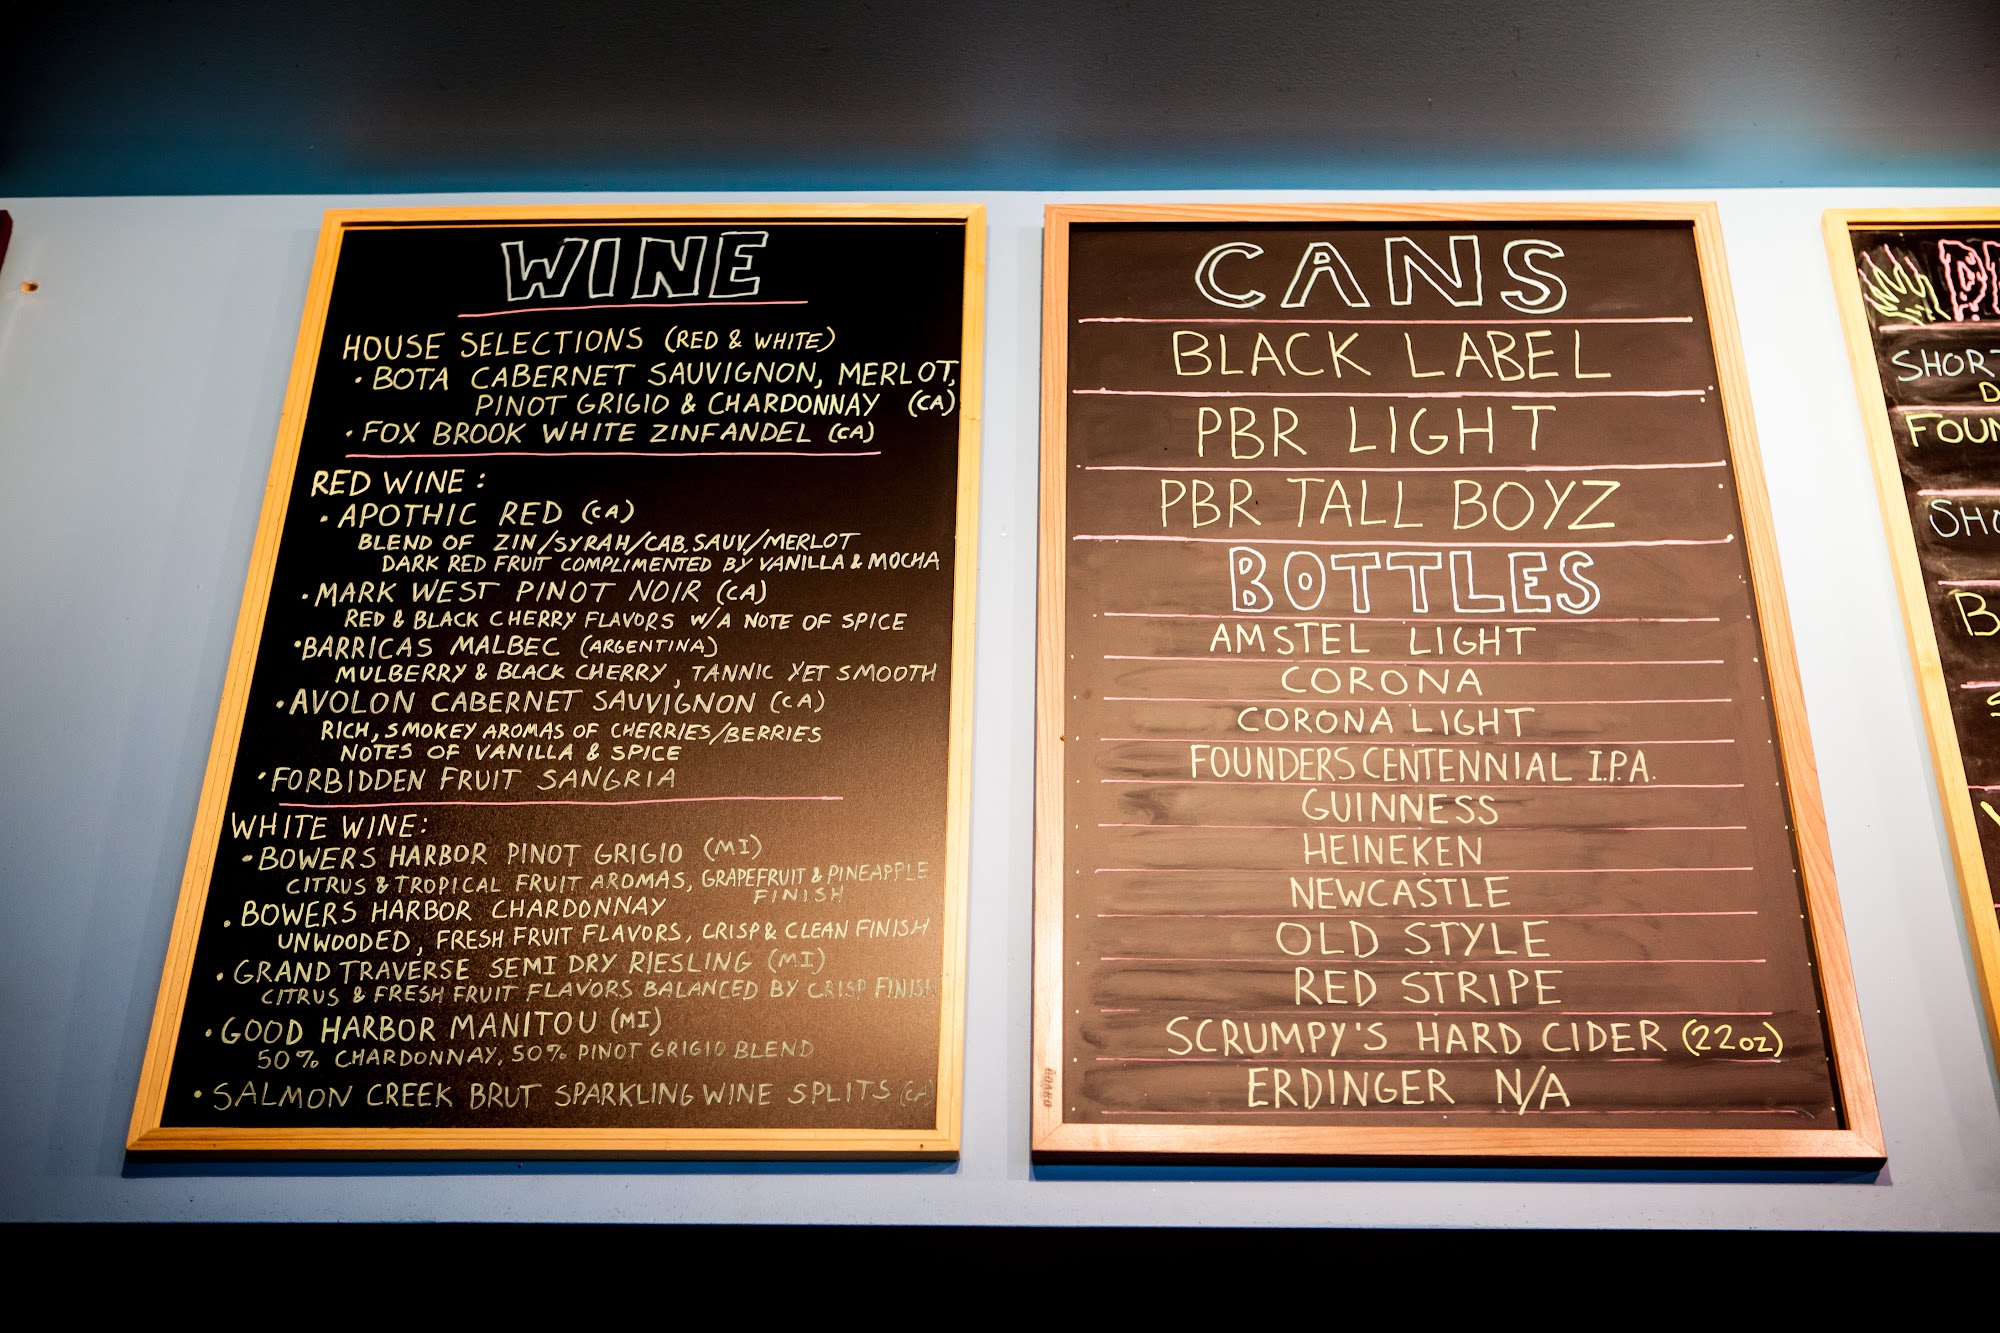 WINE
HOUSE SELECTIONS (RED & WHITE)
• BOTA CABERNET SAUVIGNON, MERLOT,
PINOT GRIGIO & CHARDONNAY (CA)
• FOX BROOK WHITE ZINFANDEL (CA)
RED WINE:
• APOTHIC RED (CA)
BLEND OF ZIN/SYRAH/CAB. SAUV./MERLOT
DARK RED FRUIT COMPLIMENTED BY VANILLA & MOCHA
• MARK WEST PINOT NOIR (CA)
RED & BLACK CHERRY FLAVORS W/A NOTE OF SPICE
• BARRICAS MALBEC (ARGENTINA)
MULBERRY & BLACK CHERRY, TANNIC YET SMOOTH
• AVOLON CABERNET SAUVIGNON (CA)
RICH, SMOKEY AROMAS OF CHERRIES/BERRIES
NOTES OF VANILLA & SPICE
• FORBIDDEN FRUIT SANGRIA
WHITE WINE:
• BOWERS HARBOR PINOT GRIGIO (MI)
CITRUS & TROPICAL FRUIT AROMAS, GRAPEFRUIT & PINEAPPLE
FINISH
• BOWERS HARBOR CHARDONNAY
UNWOODED, FRESH FRUIT FLAVORS, CRISP & CLEAN FINISH
• GRAND TRAVERSE SEMI DRY RIESLING (MI)
CITRUS & FRESH FRUIT FLAVORS BALANCED BY CRISP FINISH
• GOOD HARBOR MANITOU (MI)
50% CHARDONNAY, 50% PINOT GRIGIO BLEND
• SALMON CREEK BRUT SPARKLING WINE SPLITS (CA)
CANS
BLACK LABEL
PBR LIGHT
PBR TALL BOYZ
BOTTLES
AMSTEL LIGHT
CORONA
CORONA LIGHT
FOUNDERS CENTENNIAL I.P.A.
GUINNESS
HEINEKEN
NEWCASTLE
OLD STYLE
RED STRIPE
SCRUMPY'S HARD CIDER (22oz)
ERDINGER N/A